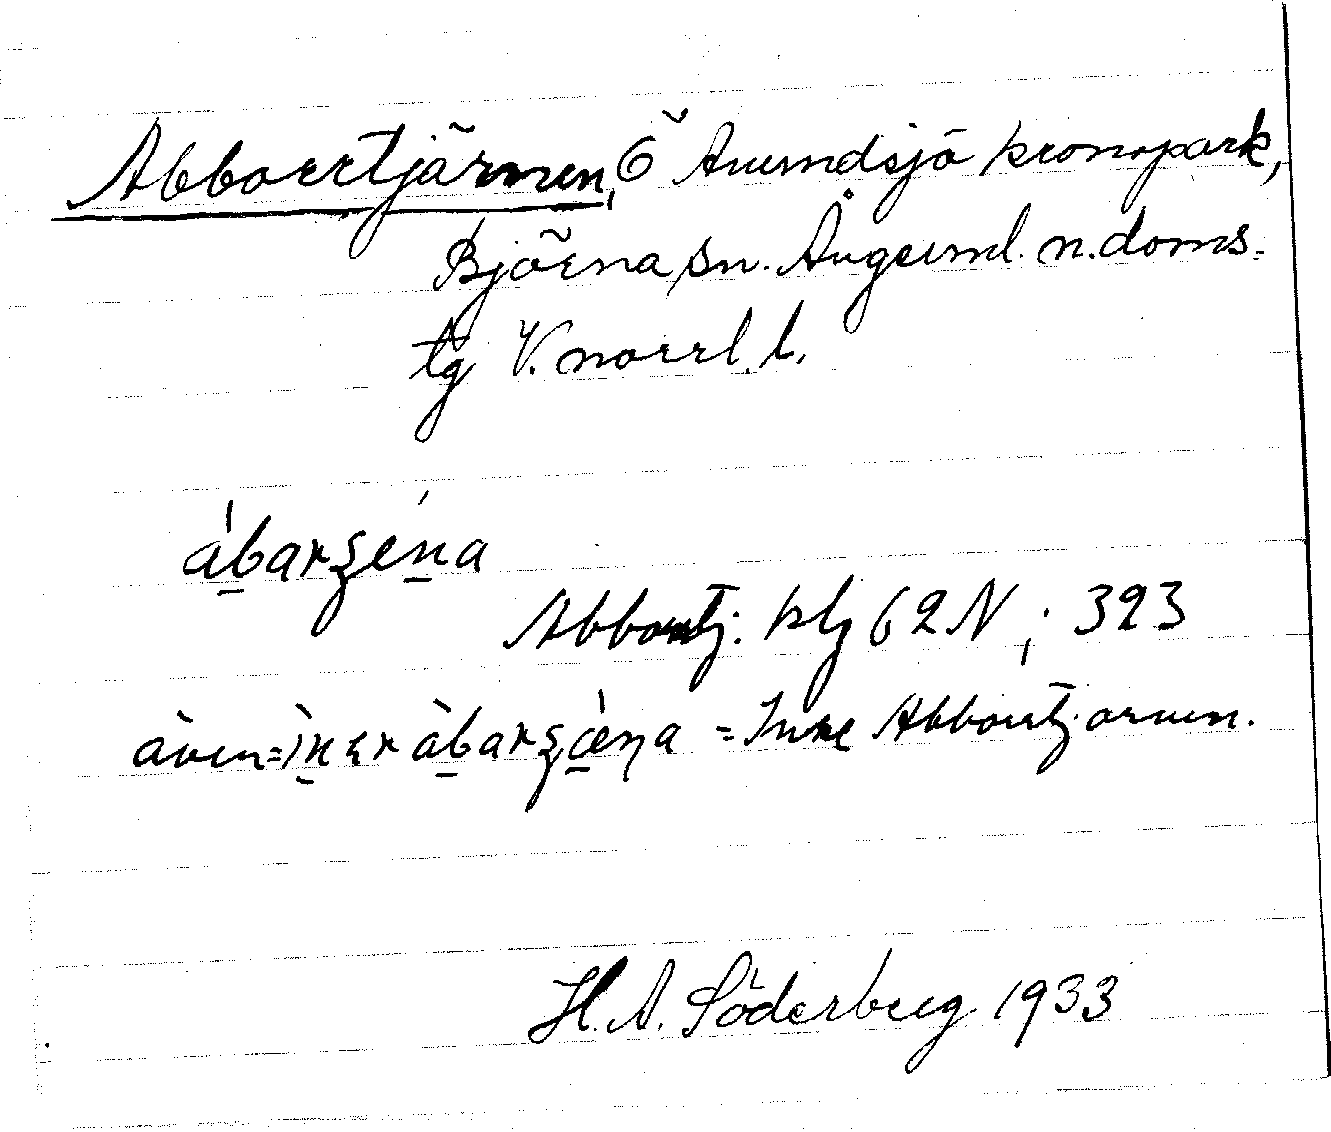 Abborrtjärnen, Ö Anundsjö kronopark,
Björna sn. Ångerml. n. doms.
tg V. norrl. l.
ábarʂéna
Abborrtj. blz 62 N; 323
även = ìnεr àbarʂæ̀ṇa = Inre Abborrtjärnen.
H. A. Söderberg 1933